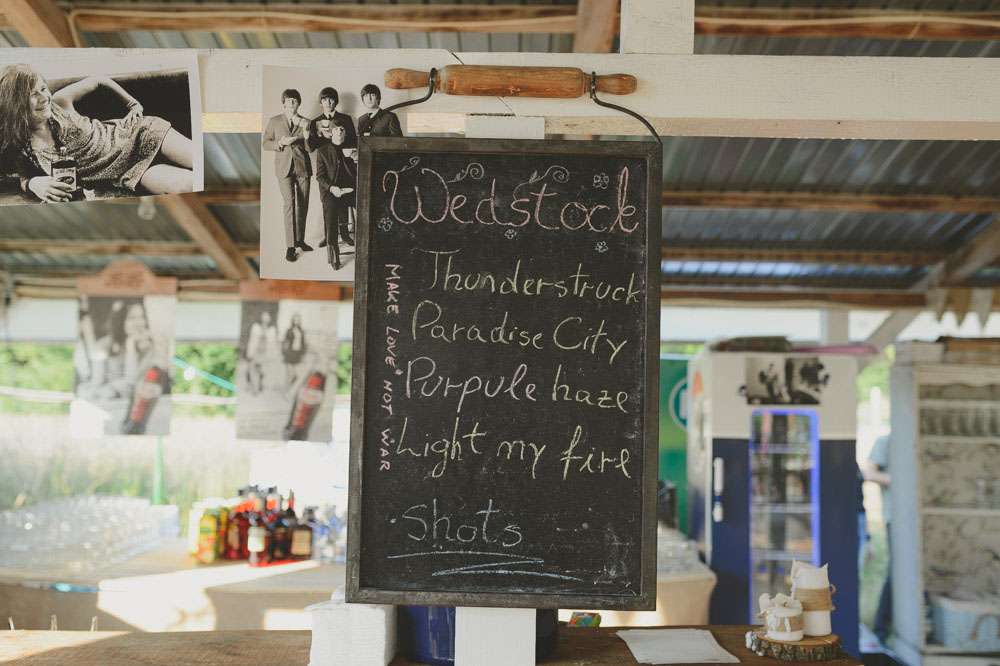 Wedstock
Thunderstruck
Paradise City
Purpule haze
Light my fire
Shots
MAKE LOVE NOT WAR